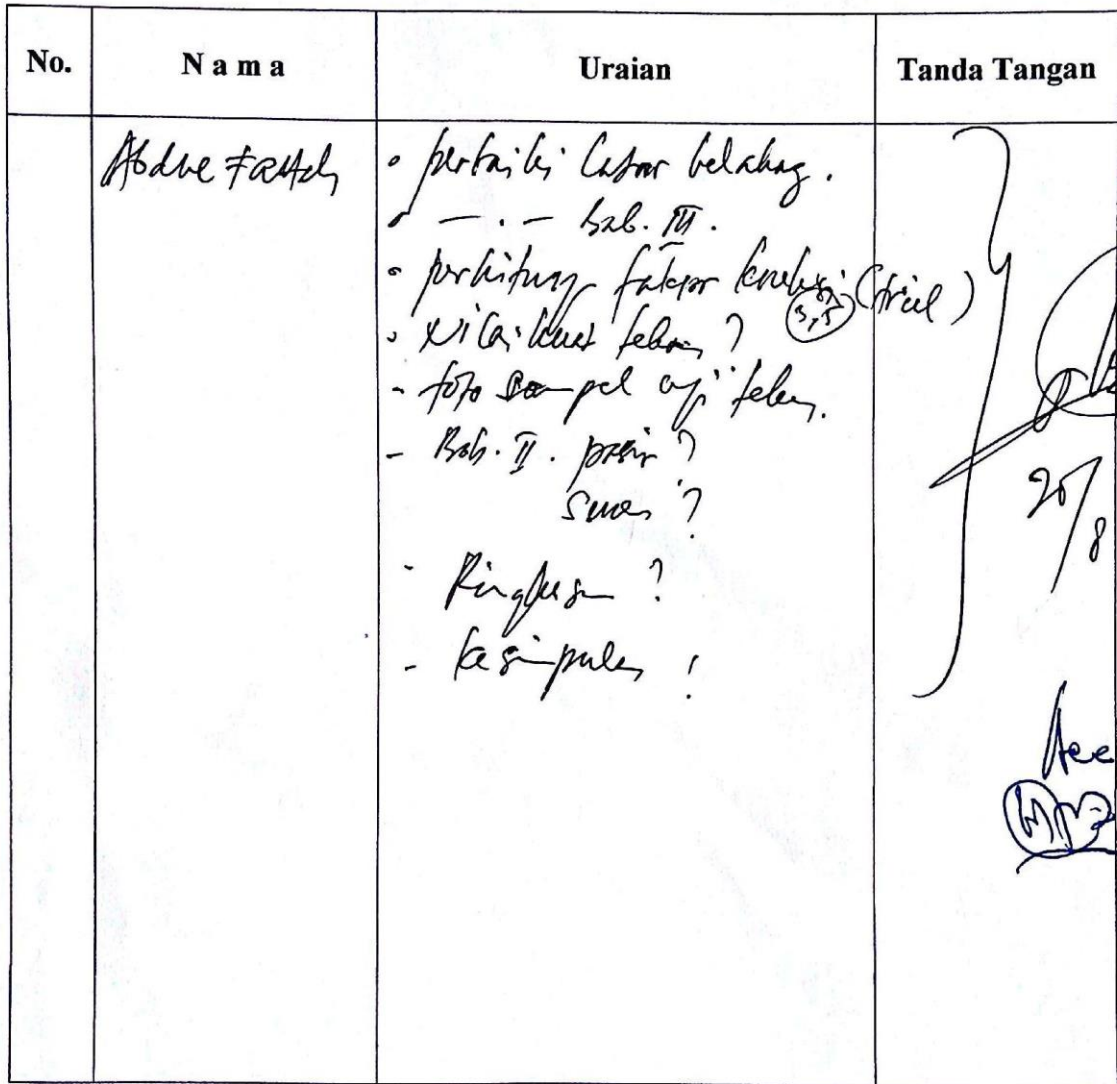 No. N a m a Uraian Tanda Tangan
Abdul Fattah
perbaiki latar belakang.
— . — Bab. III.
perhitung faktor koreksi (trial)
3,5
Nilai kuat tekan ?
- foto sampel uji tekan.
- Bab. II. pasir ?
semen ?
- Ringkasan ?
- kesimpulan !
/8
Acc